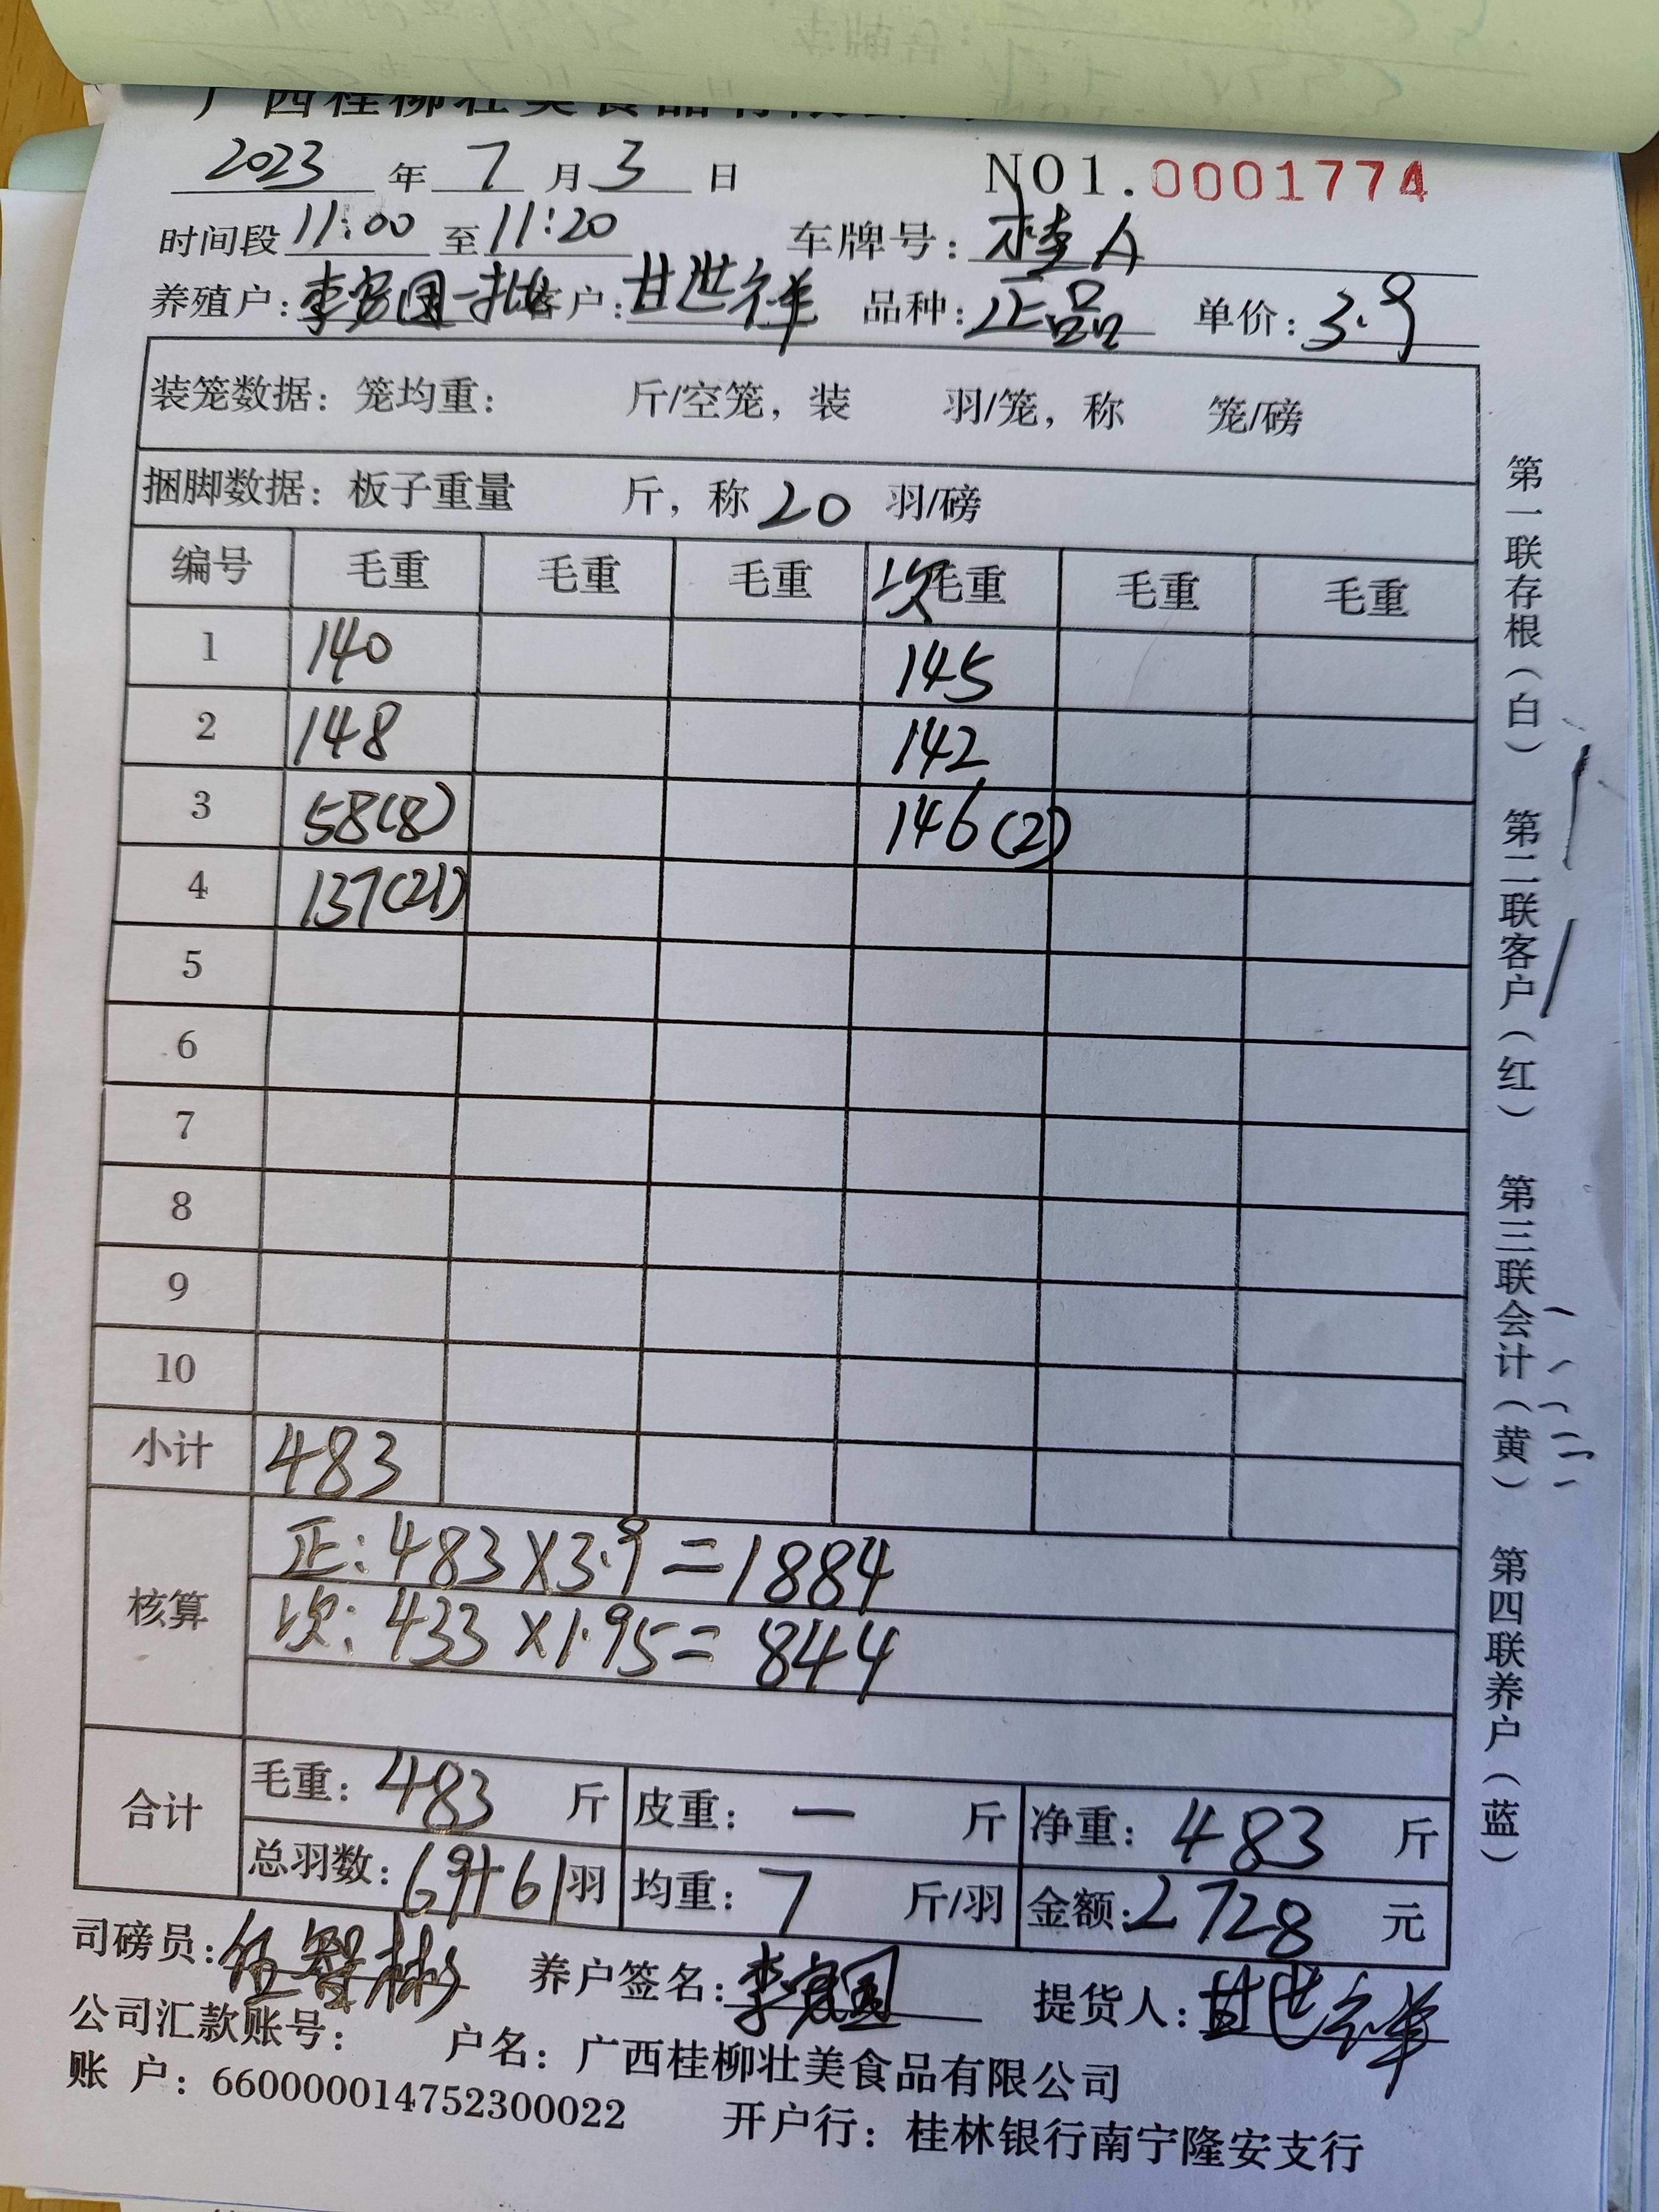 广西桂柳壮美食品有限公司
2023 年 7 月 3 日 NO1.0001774
时间段 11:00 至 11:20 车牌号:
养殖户: 李 国一批 客户: 甘世祥 品种: 正品 单价: 3.9
装笼数据: 笼均重: 斤/空笼, 装 羽/笼, 称 笼/磅
捆脚数据: 板子重量 斤, 称 20 羽/磅
编号 毛重 毛重 毛重 次 毛重 毛重 毛重
1 140 145
2 148 142
3 58(8) 146(21)
4 137(21)
5
6
7
8
9
10
小计 483
核算 正: 483×3.9=1884
次: 433×1.95=844
合计 毛重: 483 斤 皮重: — 斤 净重: 483 斤
总羽数: 69+61 羽 均重: 7 斤/羽 金额: 2728 元
司磅员: 伍智彬 养户签名: 李 国 提货人: 甘世祥
公司汇款账号: 户名: 广西桂柳壮美食品有限公司
账 户: 660000014752300022 开户行: 桂林银行南宁隆安支行
第一联存根(白) 第二联客户(红) 第三联会计(黄) 第四联养户(蓝)